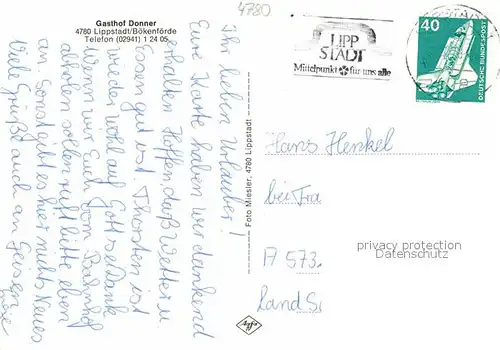 Gasthof Donner
4780 Lippstadt/Bökenförde
Telefon (02941) 1 24 05
4780
LIPP
STADT
Mittelpunkt für uns alle
40
DEUTSCHE BUNDESPOST
Ihr lieben Urlauber!
Eure Karte haben wir dankend
erhalten. Hoffen, daß Wetter u.
Essen gut ist. Thorsten ist
wieder wohlauf Gott sei Dank
Wenn wir Euch vom Bahnhof
abholen sollen, ruft bitte eben
an. Sonst gibt es hier nichts Neues
Viele Grüße auch an Geisen
Foto Miesler, 4780 Lippstadt
Hans Henkel
bei Fra
A 573
Land Si
privacy protection
Datenschutz
Agfa